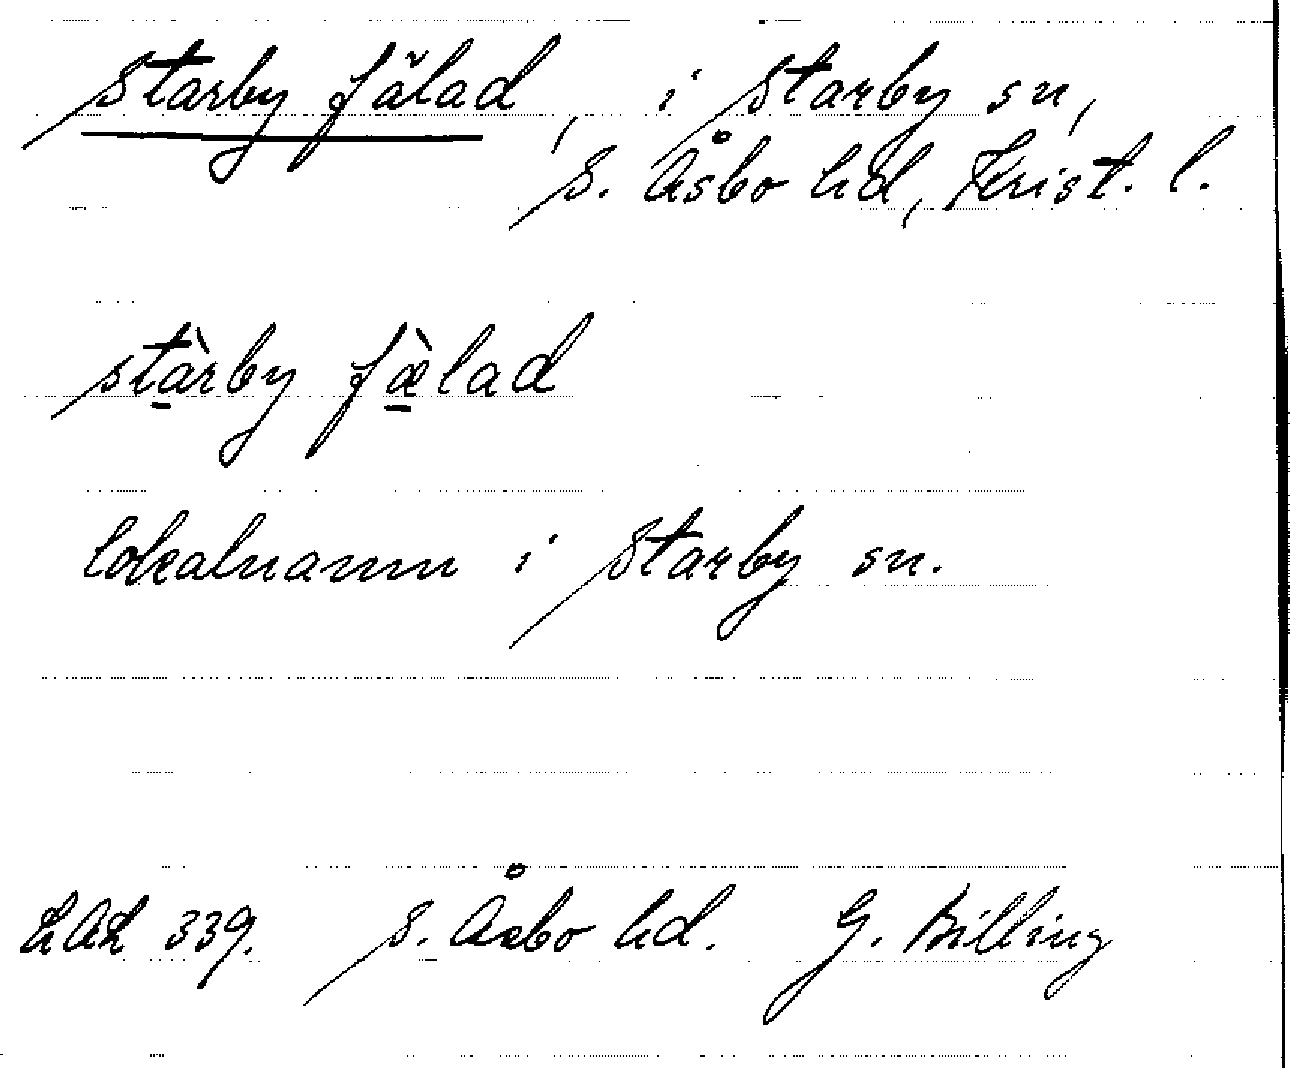 Starby fälad, i Starby sn,
S. Åsbo hd, Krist. l.
stàrby fæ̀lad
lokalnamn i Starby sn.
LAL 339. S. Åsbo hd. G. Billing